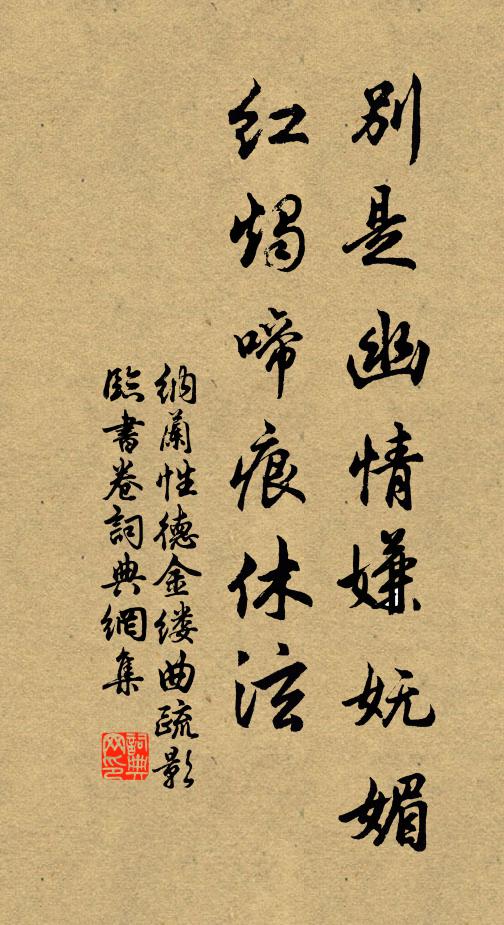 別是幽情嫌妩媚
紅燭啼痕休泫
納蘭性德金缕曲疏影
臨書卷詞典網集
詞典网印